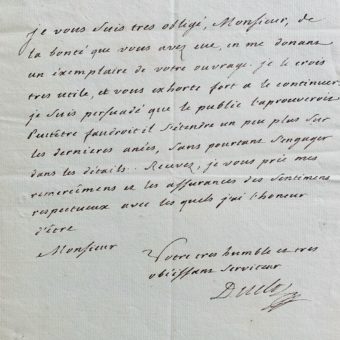 je vous suis tres obligé, Monsieur, de
la bonté que vous avez eue, en me donant
un exemplaire de votre ouvrage. je le crois
tres utile, et vous exhorte fort a le continuer
je suis persuadé que le public l'aprouveroit
Peutêtre faudroit il s'étendre un peu plus sur
les dernieres anées, sans pourtant s'engager
dans les détails. Recevez, je vous prie mes
remercîmens et les assurances des sentimens
respectueux avec les quels j'ai l'honneur
d'être
Monsieur
Votre tres humble et tres
obéissant serviteur
Duclos